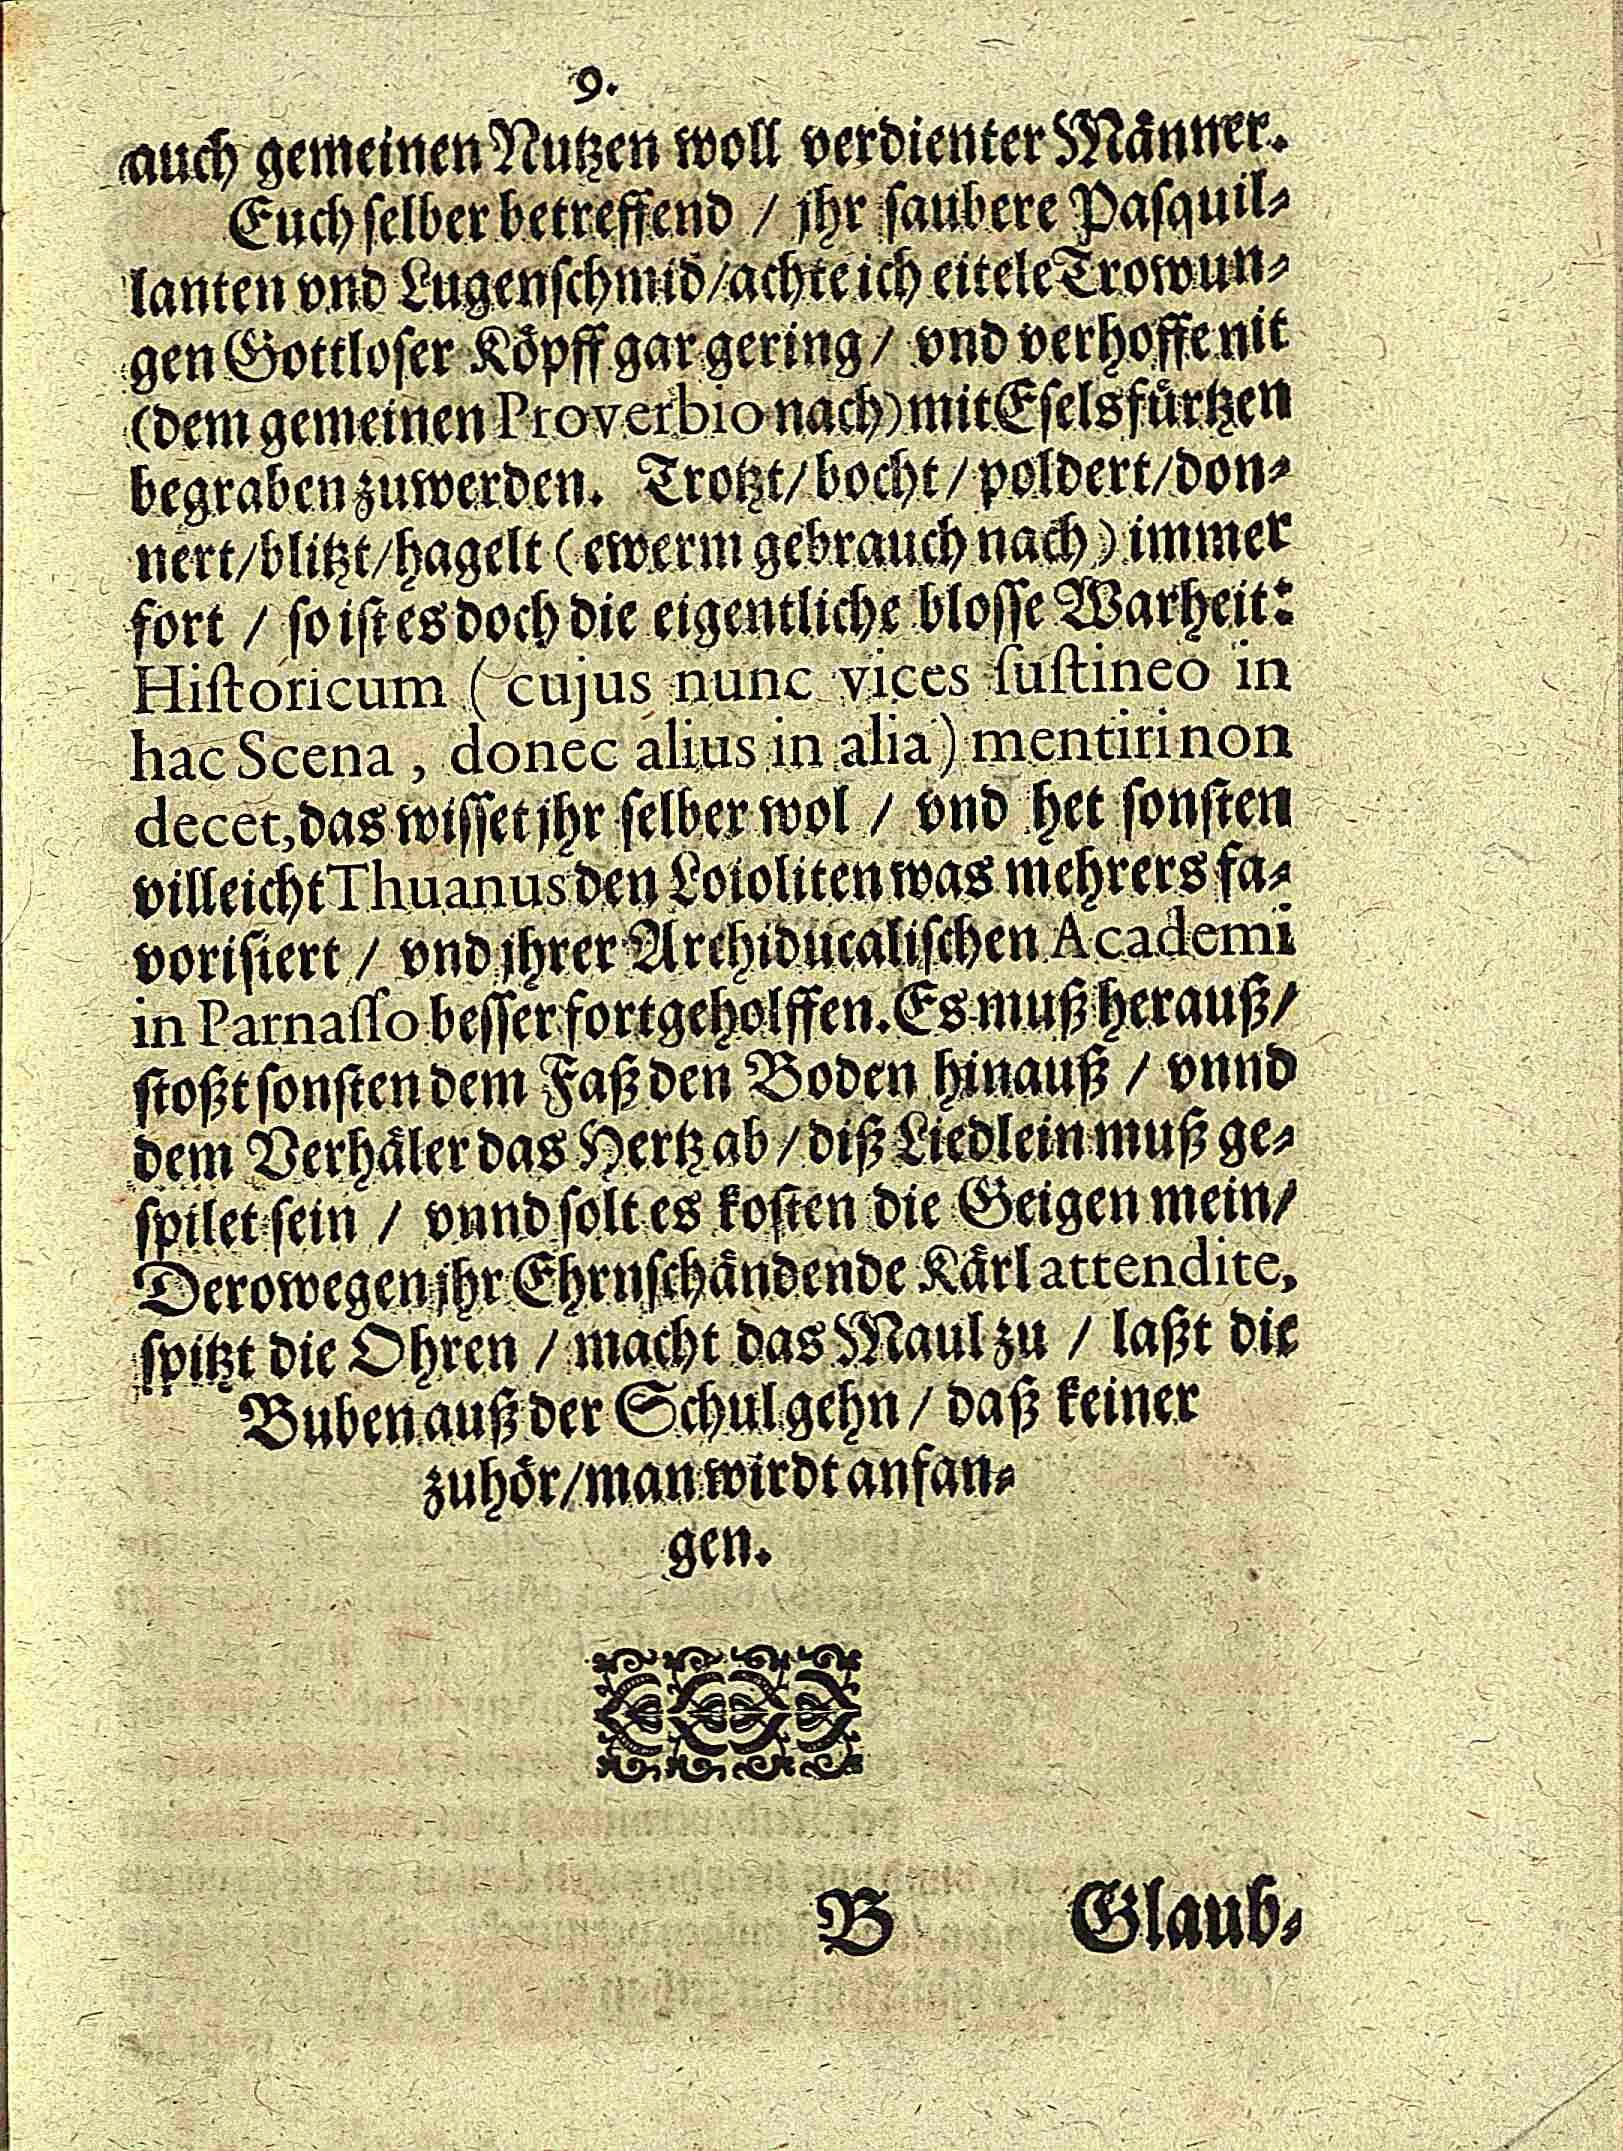 9.
auch gemeinen Nutzen woll verdienter Männer.
Euch selber betreffend / jhr saubere Pasquil⸗
lanten vnd Lugenschmid / achte ich eitele Trowun⸗
gen Gottloser Köpff gar gering / vnd verhoffe nit
(dem gemeinen Proverbio nach) mit Eselsfürtzen
begraben zuwerden. Trotzt / bocht / poldert / don⸗
nert / blitzt / hagelt (ewerm gebrauch nach) immer
fort / so ist es doch die eigentliche blosse Warheit:
Historicum (cujus nunc vices sustineo in
hac Scena, donec alius in alia) mentiri non
decet, das wisset jhr selber wol / vnd het sonsten
villeicht Thuanus den Loioliten was mehrers fa⸗
vorisiert / vnd jhrer Archiducalischen Academi
in Parnasso besser fortgeholffen. Es muß herauß /
stoßt sonsten dem Faß den Boden hinauß / vnnd
dem Verhäler das Hertz ab / diß Liedlein muß ge⸗
spilet sein / vnnd solt es kosten die Geigen mein /
Derowegen jhr Ehrnschändende Kärl attendite,
spitzt die Ohren / macht das Maul zu / laßt die
Buben auß der Schul gehn / daß keiner
zuhör / man wirdt anfan⸗
gen.
B Glaub⸗